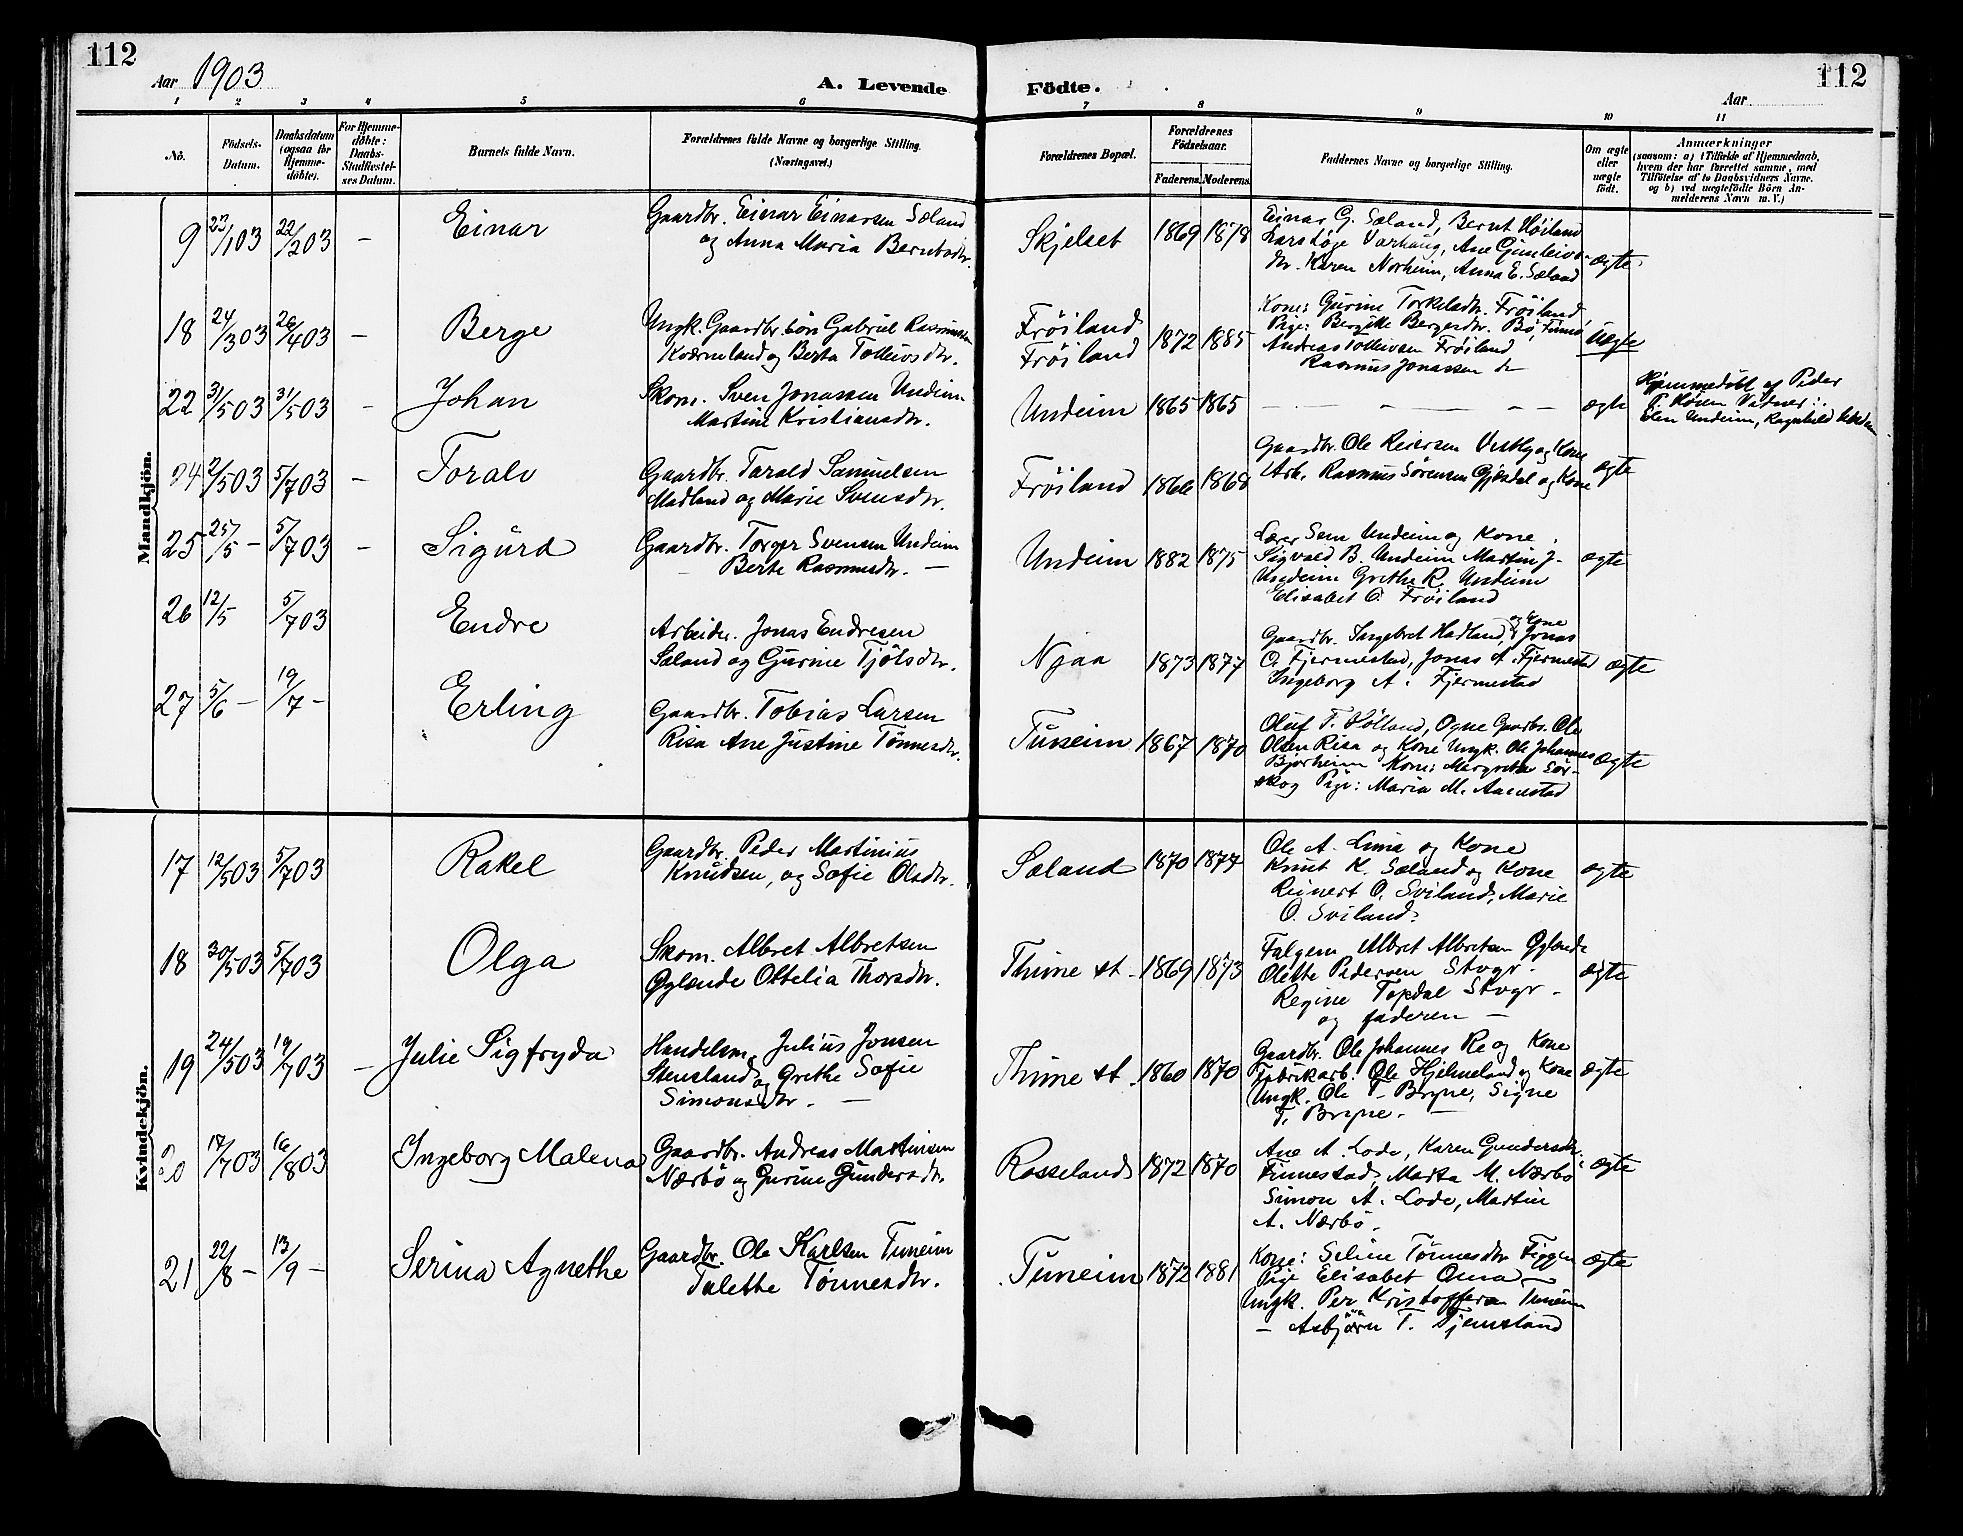 112
112
Aar 1903
A. Levende Födte.
Aar
1 2 3 4 5 6 7 8 9 10 11
No.
Födsels-
Datum.
Daabsdatum
(ogsaa for
Hjemme-
döbte).
For Hjemme-
döbte:
Daabs-
Stadfæstel-
ses Datum.
Barnets fulde Navn.
Forældrenes fulde Navne og borgerlige Stilling.
(Næringsvei.)
Forældrenes Bopæl.
Forældrenes
Födselsaar.
Faderens. Moderens.
Faddernes Navne og borgerlige Stilling.
Om ægte
eller
uægte
födt.
Anmærkninger
(saasom: a) i Tilfælde af Hjemmedaab,
hvem der har forrettet samme, med
Tilföielse af to Daabsvidners Navne.
og b) ved uægtefödte Börn An-
melderens Navn m. V.)
Mandkjön.
9 23/1 03 22/2 03 – Einar
Gaardbr. Einar Einarsen Sæland
og Anna Maria Berntsdtr.
Skjelset 1869 1878
Einar G. Sæland, Bernt Höiland
Lars Höge Varhaug, Ane Gunleivs-
dtr. Karen Norheim, Anna E. Sæland
ægte
18 24/3 03 26/4 03 – Berge
Ungk. Gaardbr. sön Gabriel Rasmussen
Kværneland og Berta Tollivsdtr.
Fröiland
Fröiland
1872 1885
Kone: Gurine Torkelsdtr. Fröiland
Pige: Bergitte Bergesdtr. Bö,
Andreas Tollivsen Fröiland
Rasmus Jonassen
uegte
22 31/5 03 31/5 03 – Johan
Skom. Sven Jonassen Undeim
Martine Kristiansdtr.
Undeim 1865 1865
– – – – –
ægte
Hjemmedöbt af Peder
Elen Undeim, Ragnhild
24 2/5 03 5/7 03 – Toralv
Gaardbr. Tarald Samuelsen
Madland og Marie Svensdtr.
Fröiland 1866 1868
Gaardbr. Ole Reiersen Vestly og Kone
Arb. Rasmus Sörensen Gjesdal og Kone
ægte
25 25/5 – 5/7 03 – Sigurd
Gaardbr. Torger Svensen Undeim
Berte Rasmusdtr. –
Undeim 1882 1875
Lærer Sem Undeim og Kone.
Sigvald B. Undeim Martin J.
Undeim Grethe R. Undeim
Elisabet O. Fröiland
ægte
26 12/5 5/7 03 Endre
Arbeider. Jonas Endresen
Sæland og Gurine Tjölsdtr.
Njaa 1873 1877
Gaardbr. Ingebret Hadland, og Kone Jonas
O. Fjermestad, Jonas A. Fjermestad
Ingeborg A. Fjermestad
ægte
27 5/6 – 19/7 – Erling
Gaardbr. Tobias Larsen
Risa Ane Justine Tönnesdtr.
Tuneim 1867 1870
Oluf T. Hölland, Ogne Gaardbr. Ole
Olsen Risa og Kone Ungk. Ole Johannes
Bjorheim Kone: Margreta Sör-
skog Pige: Maria M. Aanestad
ægte
Kvindekjön.
17 12/5 03 5/7 03 Rakel
Gaardbr. Peder Martinius
Knudsen, og Sofie Olsdtr.
Sæland 1870 1874
Ole A. Lima og Kone
Knut K. Sæland og Kone
Reinert O. Sviland, Marie
O. Sviland.
ægte
18 30/5 03 5/7 03 Olga
Skom. Albret Albretsen
Öglænde Ottelia Thorsdtr.
Thime st. 1869 1873
Falgem Albret Albretsen Öglænde
Olette Pedersen Stvgr.
Regine Topdal Stvgr.
og faderen –
ægte
19 24/5 03 19/7 03 – Julie Sigfryda
Handelsm. Julius Jonsen
Stensland og Grethe Sofie
Simonsdtr. –
Thime st. 1860 1870
Gaardbr. Ole Johannes Re og Kone
Fabrikarb. Ole Hjelmeland og Kone
Ungk. Ole T. Bryne, Signe
T. Bryne. –
ægte
20 17/7 03 16/8 03 Ingeborg Malena
Gaardbr. Andreas Martinsen
Nærbö og Gurine Gundersdtr.
Rosseland 1872 1870
Ane A. Lode, Karen Gundersdtr.
Finnestad, Marta M. Nærbö
Simon A. Lode, Martin
A. Nærbö.
ægte
21 22/8 – 13/9 – Serina Agnethe
Gaardbr. Ole Karlsen Tuneim
Talette Tönnesdtr.
Tuneim 1872 1881
Kone: Seline Tönnesdtr Figgen
Pige Elisabet Oma
Ungk. Per Kristoffersen Tuneim
– Asbjörn T. Tjemsland
ægte